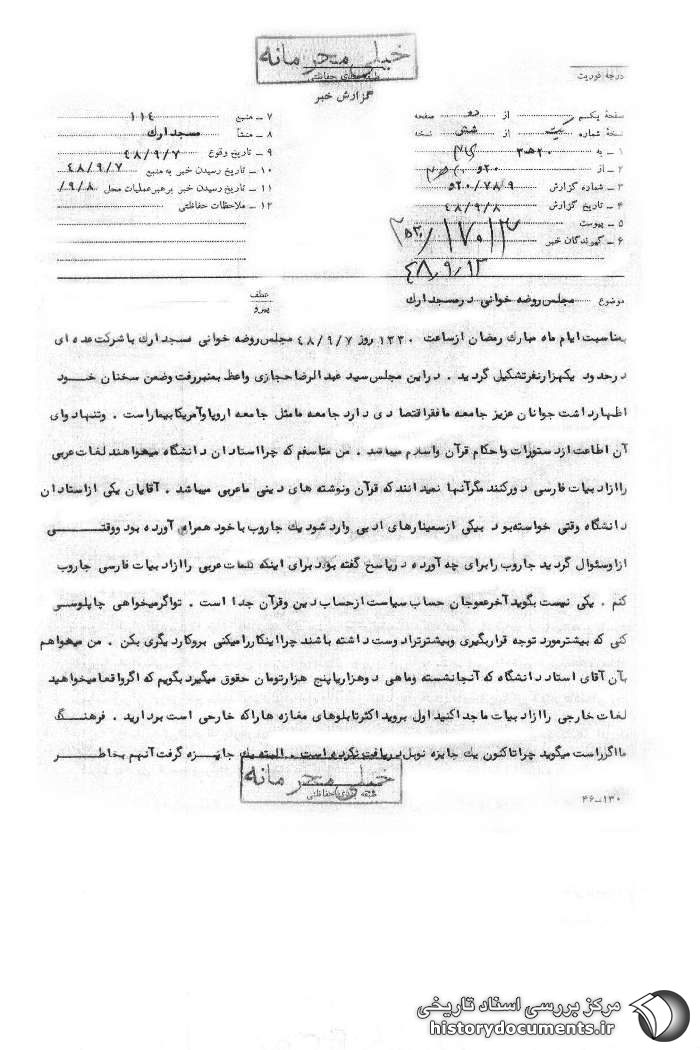 خیلی محرمانه
طبقه‌بندی حفاظتی
گزارش خبر
درجه فوریت
صفحهٔ یکم از دو صفحه
نسخهٔ شماره یک از شش نسخه
۱ ـ به ۲۰هـ۳
۲ ـ از ۲۰و
۳ ـ شماره گزارش
۴ ـ تاریخ گزارش ۴۸/۹/۸
۵ ـ پیوست
۶ ـ گیرندگان خبر
۱۷۰۱۳
۴۸٫۹٫۱۳
۷ ـ منبع ۱۱۴
۸ ـ منشأ مسجد ارك
۹ ـ تاریخ وقوع ۴۸/۹/۷
۱۰ ـ تاریخ رسیدن خبر به منبع ۴۸/۹/۷
۱۱ ـ تاریخ رسیدن خبر برهبر عملیات محل ۹/۸/
۱۲ ـ ملاحظات حفاظتی
موضوع مجلس روضه خوانی در مسجد ارك
عطف
پیرو
بمناسبت ایام ماه مبارك رمضان ازساعت ۱۳۳۰ روز ۴۸/۹/۷ مجلس روضه خوانی مسجد ارك با شرکت عده ای
درحدود یکهزارنفرتشکیل گردید . دراین مجلس سید عبدالرضا حجازی واعظ بمنبررفت وضمن سخنان خــود
اظهارداشت جوانان عزیز جامعه ما فقراقتصادی دارد جامعه ما مثل جامعه اروپا وآمریکا بیماراست . وتنها دوای
آن اطاعت ازدستورات واحکام قرآن واسلام میباشد . من متاسفم که چرا استادان دانشگاه میخواهند لغات عربی
را ازادبیات فارسی دورکنند مگرآنها نمیدانند که قرآن ونوشته های دینی ما عربی میباشد . آقایان یکی ازاستادان
دانشگاه وقتی خواسته بود بیکی ازسمینارهای ادبی وارد شود یك جاروب باخود همراه آورده بود ووقتـــی
ازاوسئوال گردید جاروب رابرای چه آورده درپاسخ گفته بود برای اینکه لغات عربی را ازادبیات فارسی جاروب
کنم . یکی نیست بگوید آخرعموجان حساب سیاست ازحساب دین وقرآن جدا است . تواگرمیخواهی چاپلوسی
کنی که بیشترمورد توجه قراربگیری وبیشترتراد وست داشته باشند چرا اینکاررامیکنی بروکاردیگری بکن . من میخواهم
بآن آقای استاد دانشگاه که آنجانشسته وماهی دوهزاریاپنج هزارتومان حقوق میگیرد بگویم که اگرواقعا میخواهید
لغات خارجی را ازادبیات ما جدا کنید اول بروید اکثرتابلوهای مغازه هاراکه خارجی است بردارید . فرهنــگ
ما اگرراست میگوید چراتاکنون یك جایزه نوبل دریافت نکرده است . البته یك جایـزه گرفت آنهم بخاطــر
خیلی محرمانه
طبقه بندی حفاظتی
۴۶ـ۱۳۰
مرکز بررسی اسناد تاریخی
historydocuments.ir